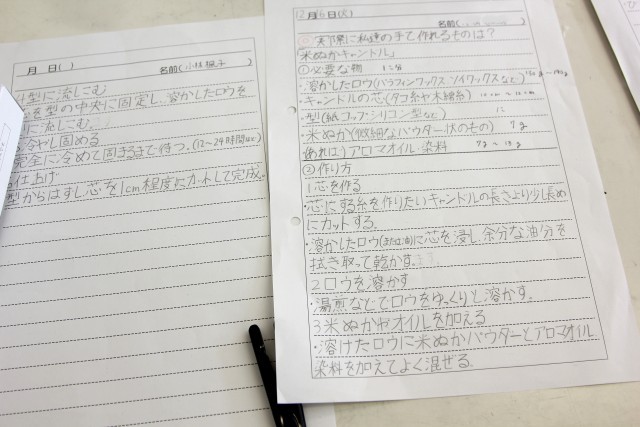 月 日( ) 名前(小林 )
型に流しこむ
を型の中央に固定し、溶かしたロウを
に流しこむ。
冷やし固める
完全に冷めて固まるまで待つ。(12〜24時間以上)
仕上げ
型からはずし芯を1cm程度にカットして完成。
12月16日(火) 名前( )
災害下に私達の手で作れるものは?
「米ぬかキャンドル」
①必要な物
・溶かしたロウ(パラフィンワックス、ソイワックスなど)
・キャンドルの芯(タコ糸や木綿糸)
・型(紙コップ・シリコン型など)
・米ぬか(微細なパウダー状のもの) 7g
あれば)アロマオイル・染料
②作り方
1芯を作る
・芯にする糸を作りたいキャンドルの長さより少し長め
にカットする。
・溶かしたロウ(または油)に芯を浸し、余分な油分を
拭き取って乾かす。
2ロウを溶かす
・湯煎などでロウをゆっくりと溶かす。
3米ぬかやオイルを加える
・溶けたロウに米ぬかパウダーとアロマオイル
染料を加えてよく混ぜる。